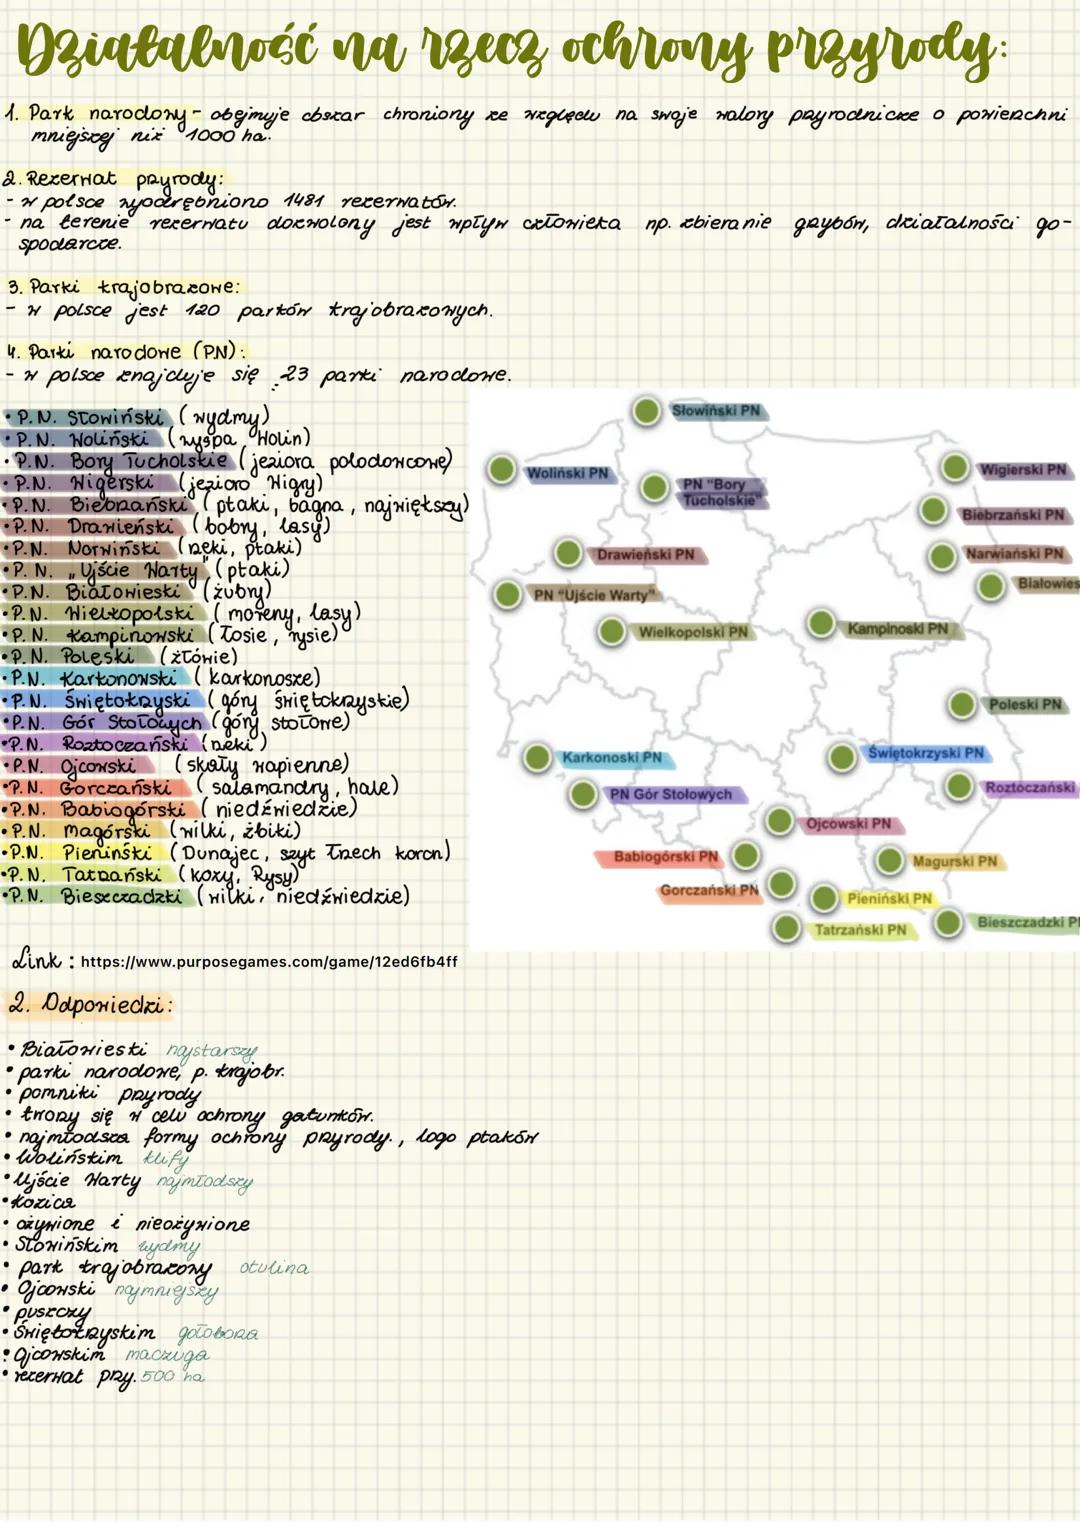 Działalność na rzecz ochrony przyrody:
1. Park narodowy - obejmuje obszar chroniony ze względu na swoje walory przyrodnicze o powierzchni
mniejszej niż 1000 ha.
2. Rezerwat przyrody:
- w polsce wyodrębniono 1481 rezerwatów.
- na terenie rezerwatu dozwolony jest wpływ człowieka np. zbieranie grzybów, działalności go-
spodarcze.
3. Parki krajobrazowe:
- w polsce jest 120 parków krajobrazowych.
4. Parki narodowe (PN):
- w polsce znajduje się 23 parki narodowe.
• P.N. Słowiński (wydmy)
• P.N. Woliński (wyspa Wolin)
• P.N. Bory Tucholskie (jeziora polodowcowe)
• P.N. Wigerski (jezioro Wigry)
• P.N. Biebrzański (ptaki, bagna, największy)
• P.N. Drawieński (bobry, lasy)
• P.N. Norwiński (rzeki, ptaki)
• P.N. „Ujście Warty" (ptaki)
• P.N. Białowieski (żubry)
• P.N. Wielkopolski (moreny, lasy)
• P.N. Kampinowski (łosie, rysie)
• P.N. Poleski (żłówie)
• P.N. Karkonowski (karkonosze)
• P.N. Świętokrzyski (góry świętokrzyskie)
• P.N. Gór Stołowych (góry stołowe)
• P.N. Roztoczański (rzeki)
• P.N. Ojcowski (skały wapienne)
• P.N. Gorczański (salamandry, hale)
• P.N. Babiogórski (niedźwiedzie)
• P.N. Magórski (wilki, żbiki)
• P.N. Pieniński (Dunajec, szyt Trzech koron)
• P.N. Tatrzański (kozy, Rysy)
• P.N. Bieszczadzki (wilki, niedźwiedzie)
Słowiński PN
Woliński PN
PN "Bory
Tucholskie"
Wigierski PN
Biebrzański PN
Drawieński PN
Narwiański PN
PN "Ujście Warty"
Białowies
Wielkopolski PN
Kampinoski PN
Poleski PN
Karkonoski PN
Świętokrzyski PN
PN Gór Stołowych
Roztoczański
Ojcowski PN
Babiogórski PN
Magurski PN
Gorczański PN
Pieniński PN
Tatrzański PN
Bieszczadzki P
Link : https://www.purposegames.com/game/12ed6fb4ff
2. Odpowiedzi:
• Białowieski najstarszy
• parki narodowe, p. krajobr.
• pomniki przyrody
• tworzy się w celu ochrony gatunków.
• najmłodsza formy ochrony przyrody., logo ptaków
• Wolińskim klify
• Ujście Warty najmłodszy
• kozica
• ożywione i nieożywione
• Słowińskim wydmy
• park krajobrazowy otulina
• Ojcowski najmniejszy
• puszczy
• Świętokrzyskim gołoborza
• Ojcowskim maczuga
• rezerwat przy. 500 ha